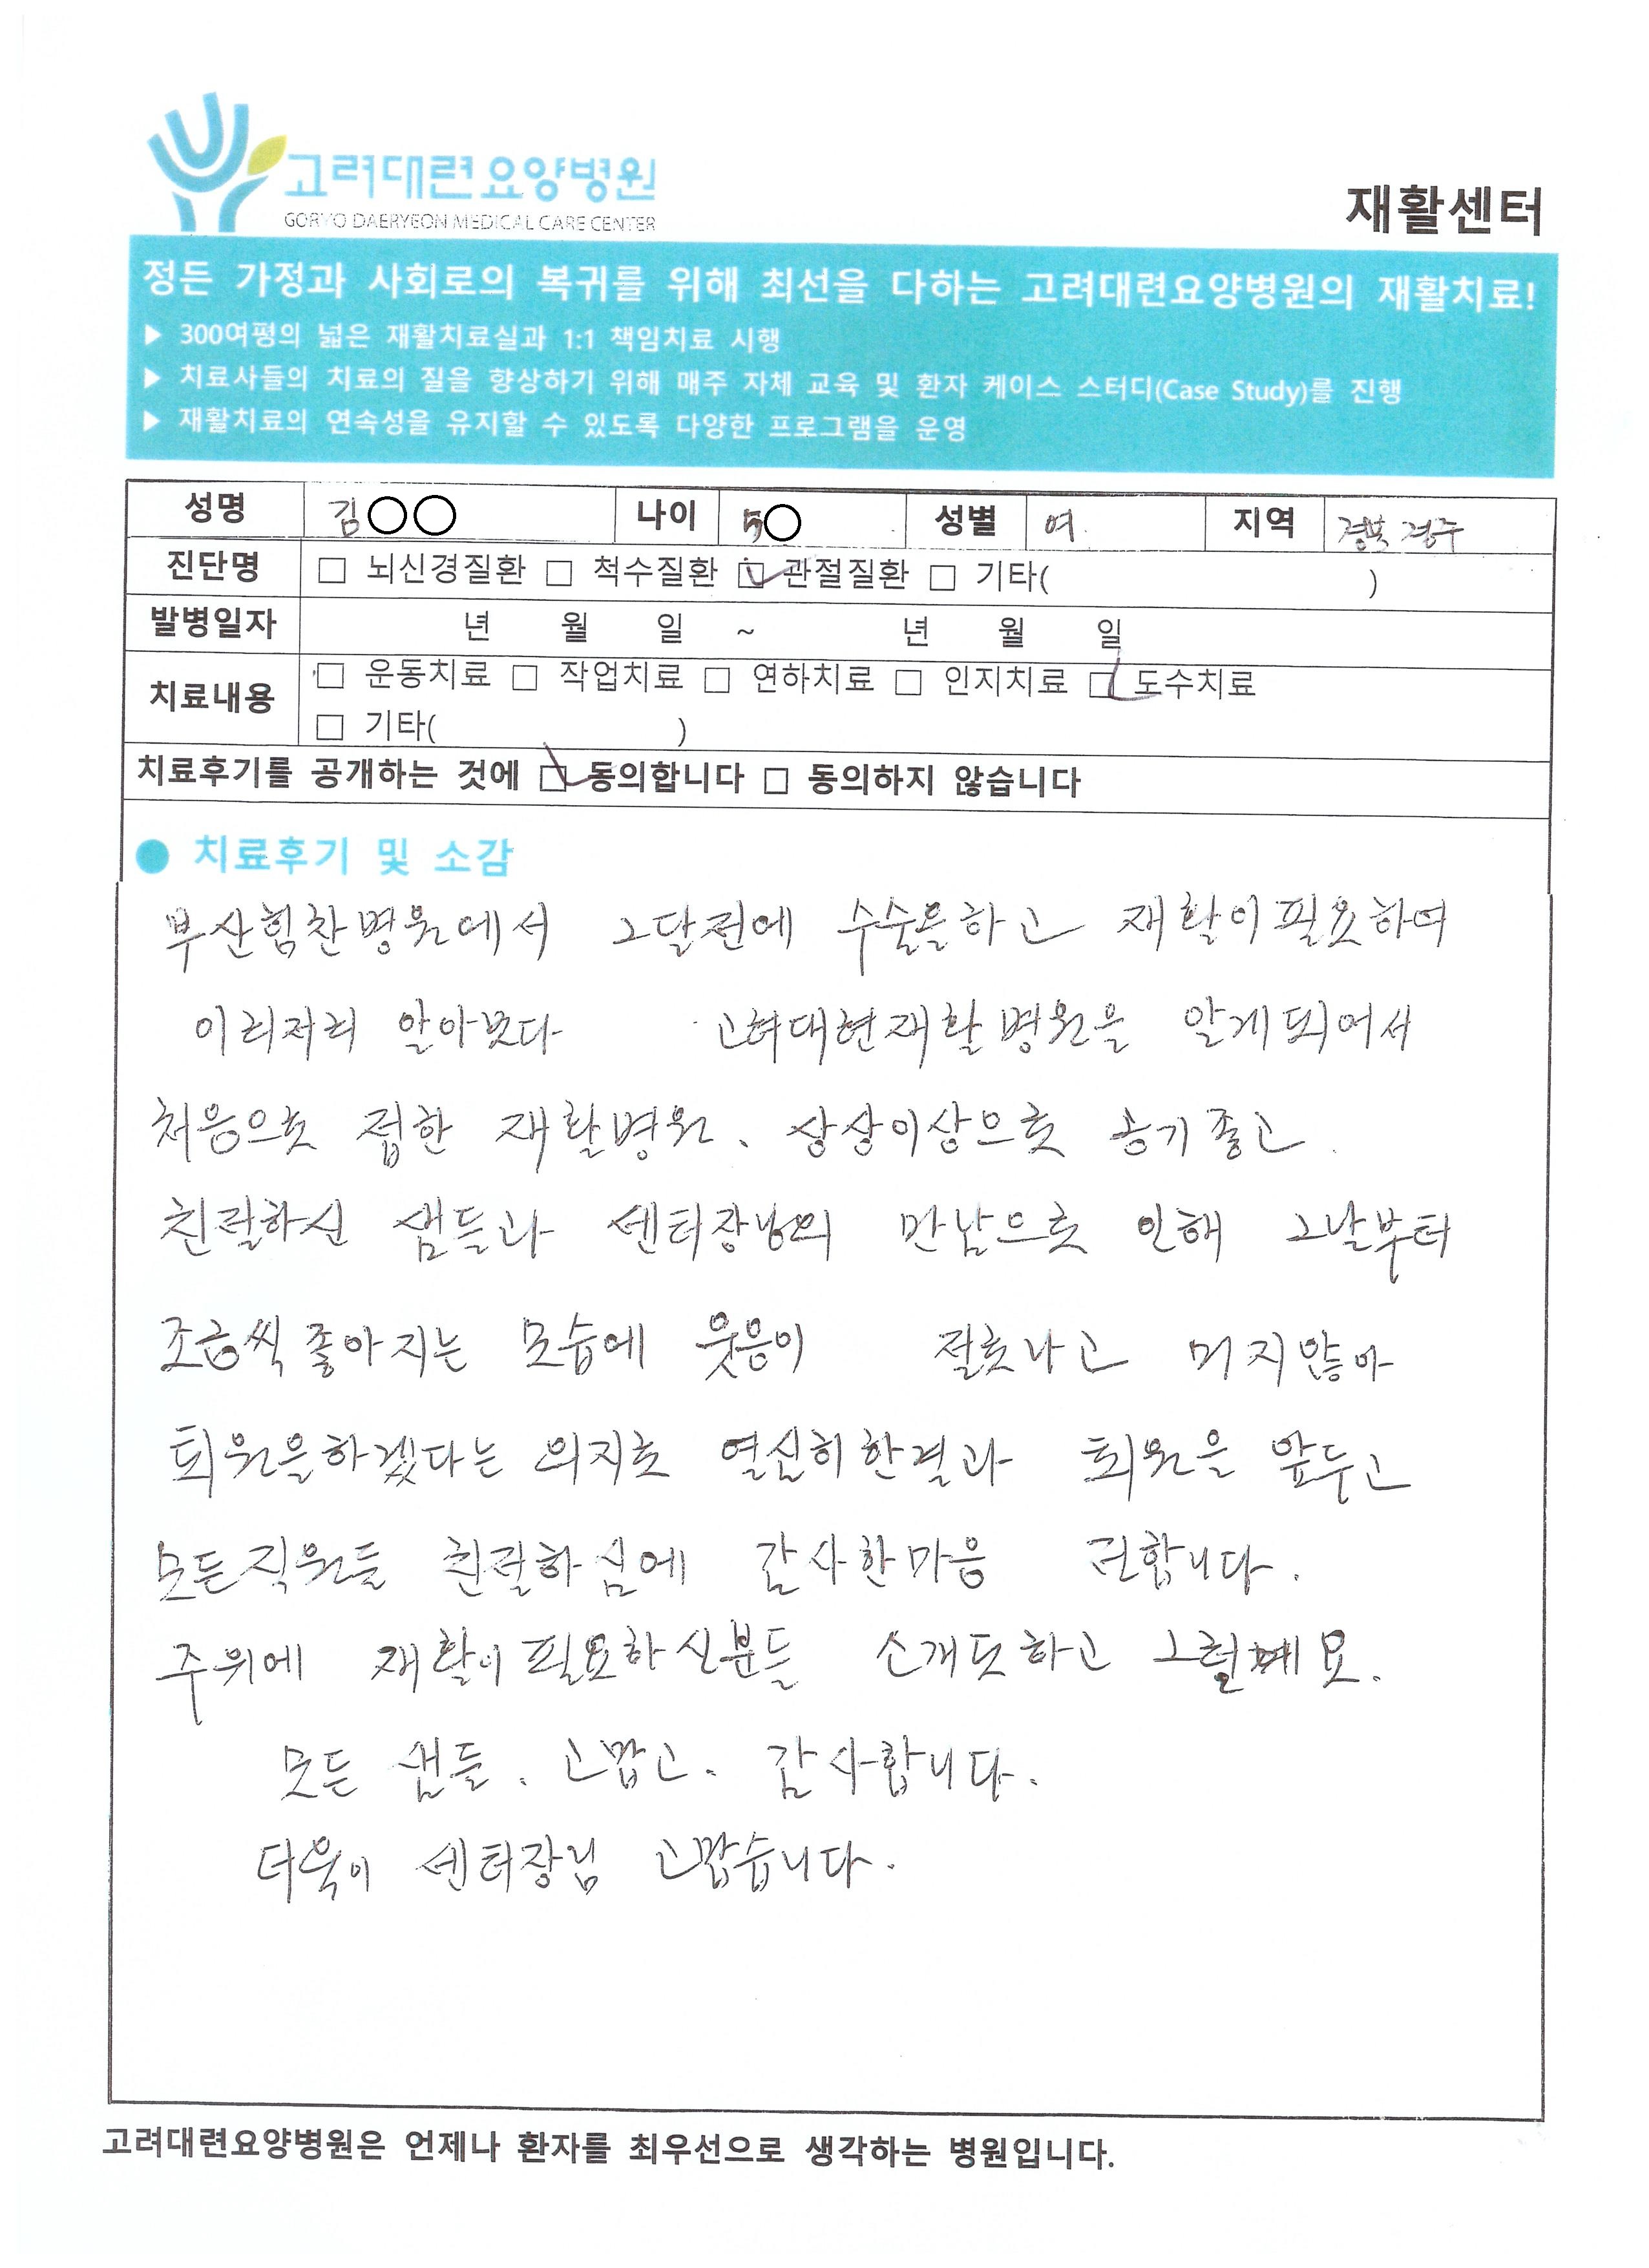 고려대련요양병원
GORYO DAERYEON MEDICAL CARE CENTER
재활센터
정든 가정과 사회로의 복귀를 위해 최선을 다하는 고려대련요양병원의 재활치료!
▶ 300여평의 넓은 재활치료실과 1:1 책임치료 시행
▶ 치료사들의 치료의 질을 향상하기 위해 매주 자체 교육 및 환자 케이스 스터디(Case Study)를 진행
▶ 재활치료의 연속성을 유지할 수 있도록 다양한 프로그램을 운영
성명 김○○ 나이 5○ 성별 여 지역 경북 경주
진단명 □ 뇌신경질환 □ 척수질환 ☑ 관절질환 □ 기타( )
발병일자 년 월 일 ~ 년 월 일
치료내용 □ 운동치료 □ 작업치료 □ 연하치료 □ 인지치료 ☑ 도수치료
□ 기타( )
치료후기를 공개하는 것에 ☑ 동의합니다 □ 동의하지 않습니다
● 치료후기 및 소감
부산힘찬병원에서 2달전에 수술을하고 재활이필요하여
이리저리 알아보다 고려대련재활병원을 알게되어서
처음으로 접한 재활병원. 상상이상으로 공기좋고.
친절하신 샘들과 센터장님의 만남으로 인해 그날부터
조금씩좋아지는 모습에 웃음이 절로나고 머지않아
퇴원을하겠다는 의지로 열심히한결과 퇴원을 앞두고
모든직원들 친절하심에 감사한마음 전합니다.
주위에 재활이필요하신분들 소개도하고 그럴께요.
모든 샘들. 고맙고. 감사합니다.
더욱이 센터장님 고맙습니다.
고려대련요양병원은 언제나 환자를 최우선으로 생각하는 병원입니다.